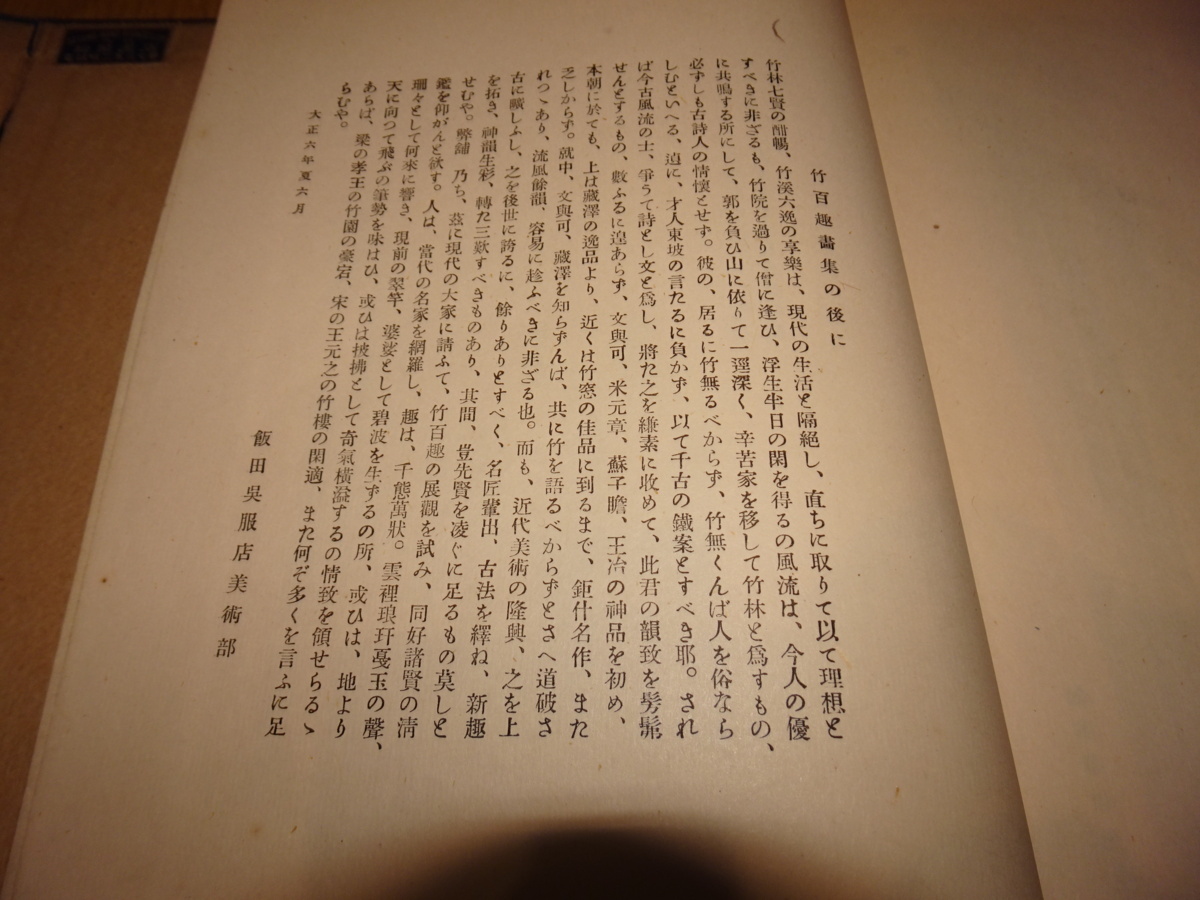 竹百趣畫集の後に
竹林七賢の酣暢、竹溪六逸の享樂は、現代の生活と隔絶し、直ちに取りて以て理想と
すべきに非ざるも、竹院を過りて僧に逢ひ、浮生半日の閑を得るの風流は、今人の優
に共鳴する所にして、郭を負ひ山に依りて一逕深く、辛苦家を移して竹林と爲すもの、
必ずしも古詩人の情懷とせず。彼の、居るに竹無るべからず、竹無くんば人を俗なら
しむといへる、洵に、才人東坡の言たるに負かず、以て千古の鐵案とすべき耶。され
ば今古風流の士、爭うて詩とし文と爲し、將た之を縑素に收めて、此君の韻致を髣髴
せんとするもの、數ふるに遑あらず、文與可、米元章、蘇子瞻、王冶の神品を初め、
本朝に於ても、上は藏澤の逸品より、近くは竹窓の佳品に到るまで、鉅什名作、また
乏しからず。就中、文與可、藏澤を知らずんば、共に竹を語るべからずとさへ道破さ
れつゝあり、流風餘韻、容易に趁ふべきに非ざる也。而も、近代美術の隆興、之を上
古に曠しふし、之を後世に誇るに、餘りありとすべく、名匠輩出、古法を繹ね、新趣
を拓き、神韻生彩、轉た三歎すべきものあり、其間、豈先賢を凌ぐに足るもの莫しと
せむや。弊舖 乃ち、茲に現代の大家に請ふて、竹百趣の展觀を試み、同好諸賢の淸
鑑を仰がんと欲す。人は、當代の名家を網羅し、趣は、千態萬狀。雲裡琅玕戞玉の聲、
珊々として何來に響き、現前の翠竿、婆娑として碧波を生ずるの所、或ひは、地より
天に向つて飛ぶの筆勢を味はひ、或ひは披拂として奇氣橫溢するの情致を領せらるゝ
あらば、梁の孝王の竹園の豪宕、宋の王元之の竹樓の閑適、また何ぞ多くを言ふに足
らむや。
大正六年夏六月
飯田吳服店美術部